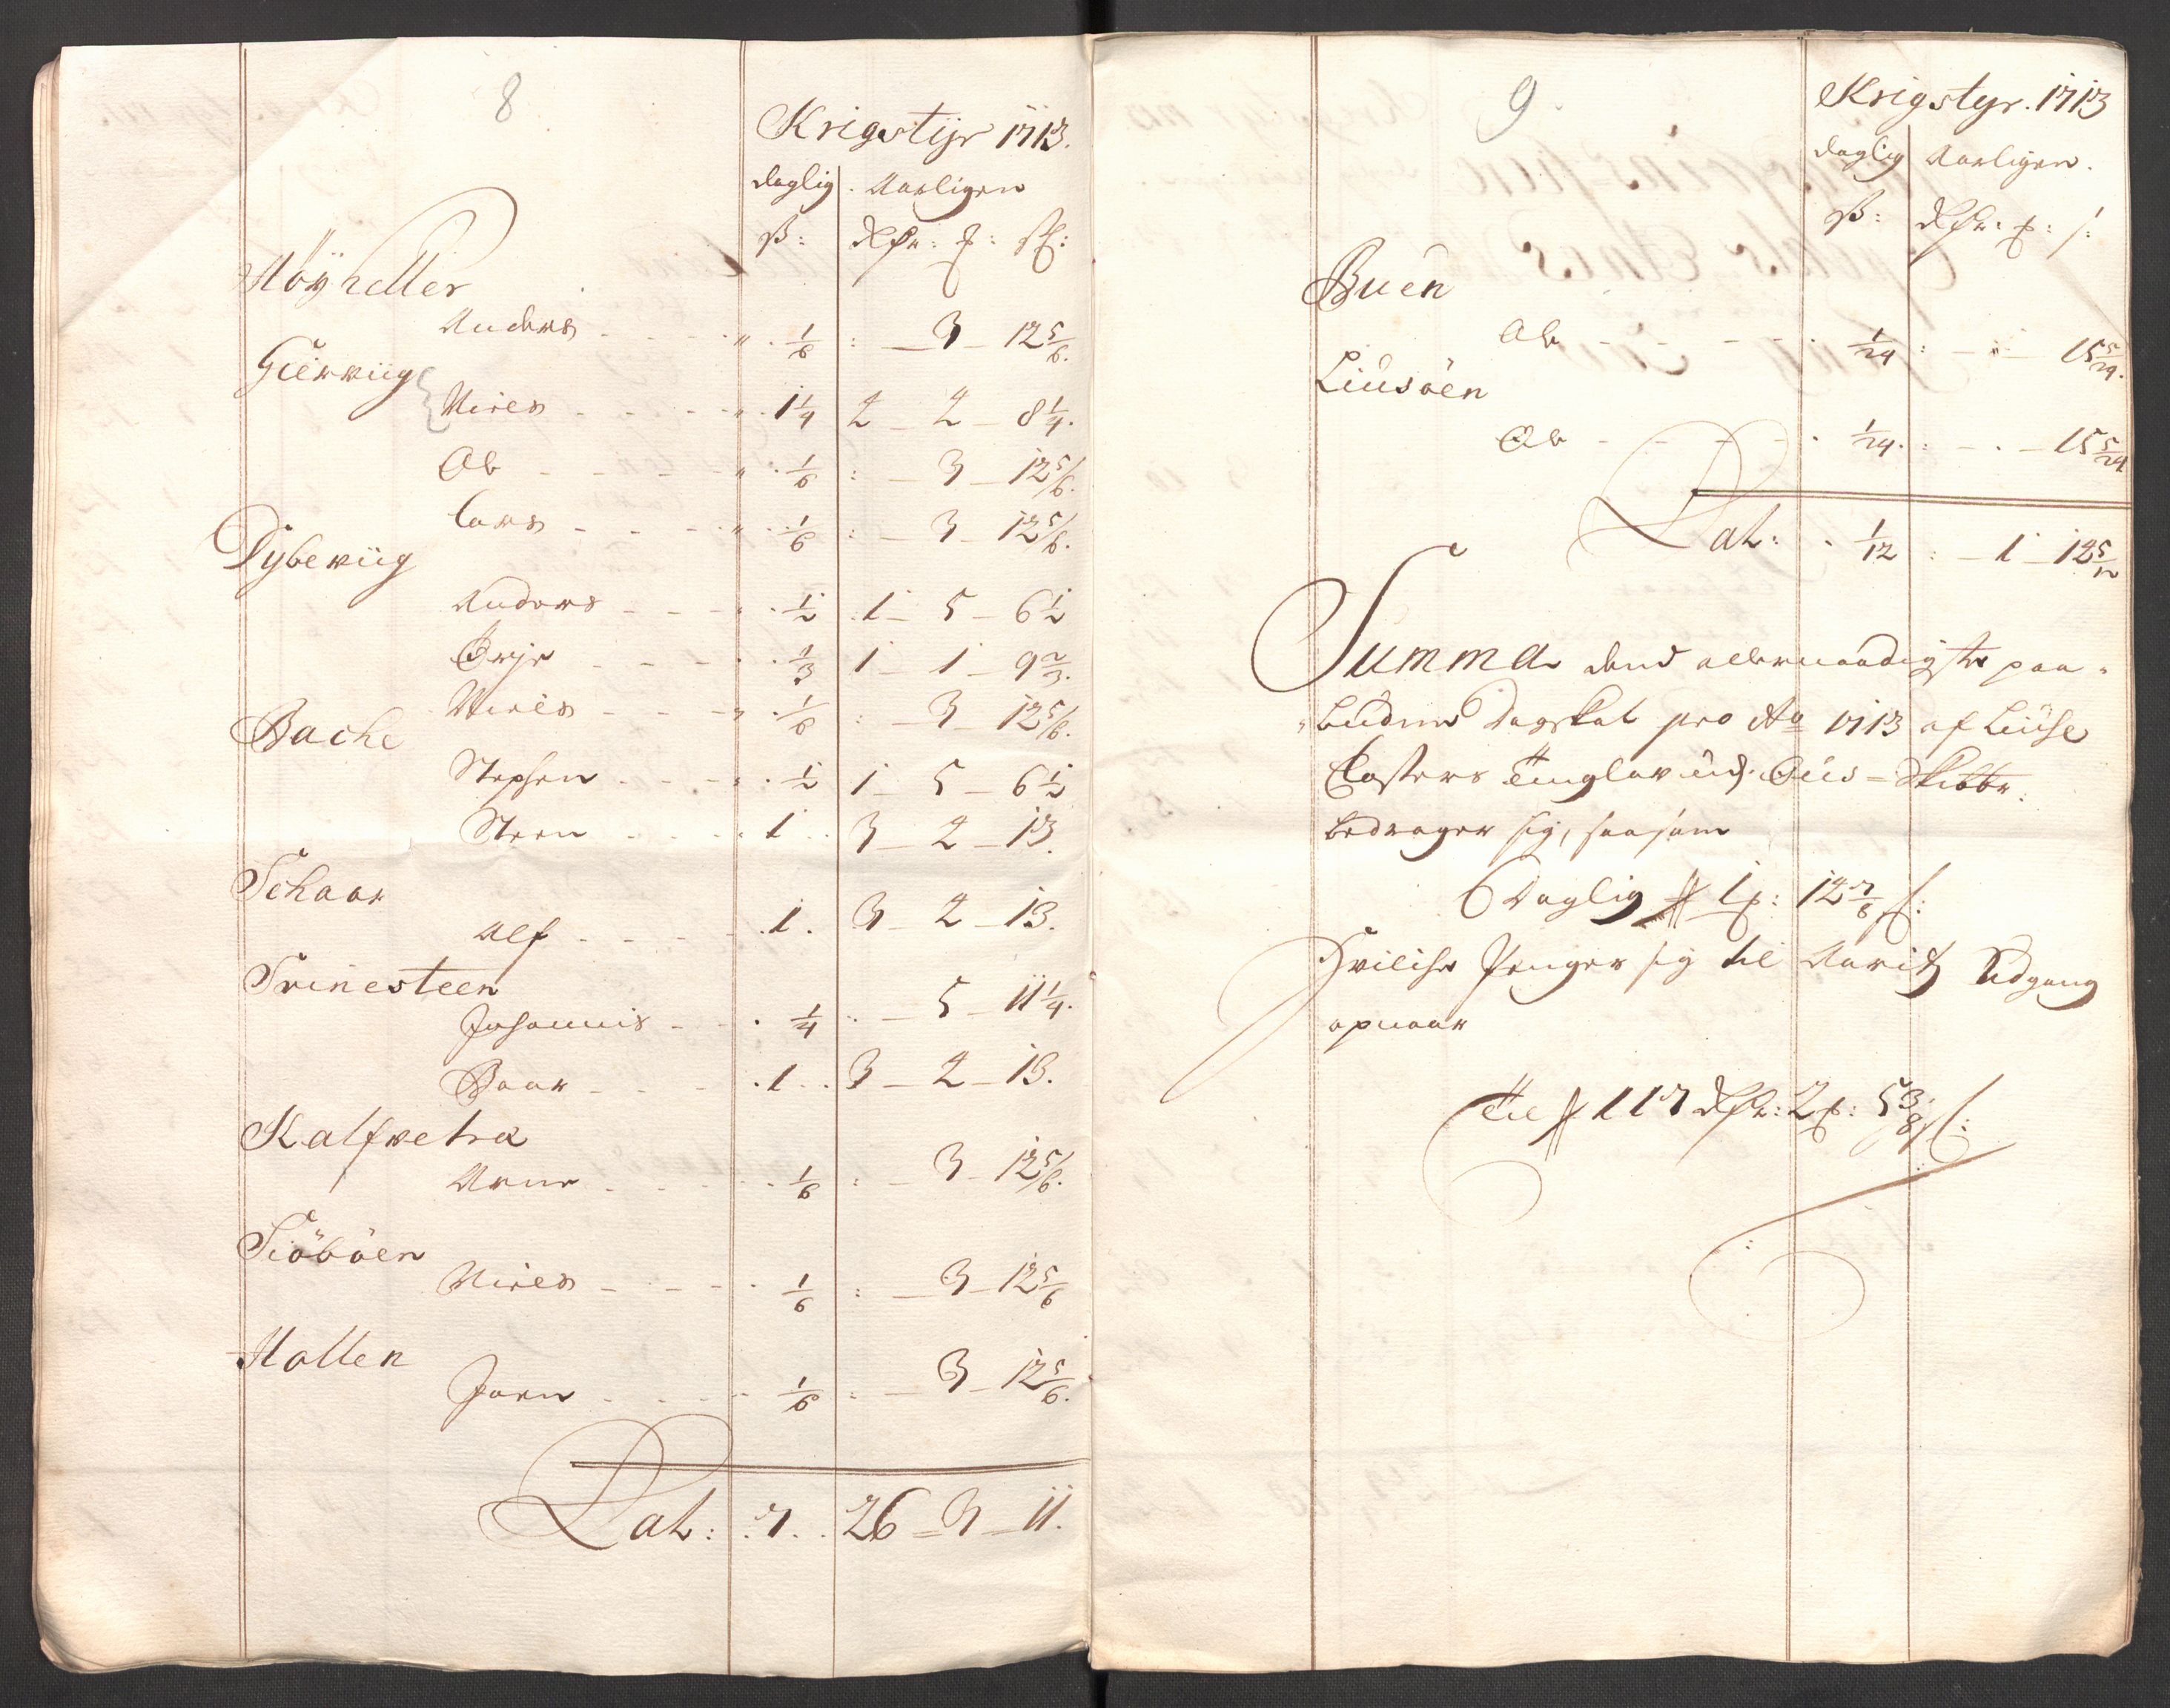 8
Krigstÿr 1713.
daglig . Aarligen
ß: Rdlr: ƶ: ſk:
Høÿheller
Anders - - - - " . 1/6 : - 3 - 12 5/6.
Gierviig
Nires - - - - " . 1 1/4 2 - 2 - 8 1/4.
Ole - - - - " . 1/6 : - 3 - 12 5/6.
Lars - - - - " . 1/6 : - 3 - 12 5/6.
Dybeviig
Anders - - - . 1/2 . 1 - 5 - 6 1/2
Brÿr - - - . 1/3 1 - 1 - 9 2/3.
Nires - - - " . 1/6 : - 3 - 12 5/6.
Bache
Stephen - - - . 1/2 1 - 5 - 6 1/2
Steen - - - . 1 . . 3 - 2 - 13.
Schaar
Alf - - - - . 1 . 3 - 2 - 13.
Trinesteen
Johannis - - . 1/4 : - 5 - 11 1/4.
Baar - - - . 1 . . 3 - 2 - 13.
Kalfvetræ
Arne - - - - . 1/6 : - 3 - 12 5/6.
Siöböen
Nires - - - - . 1/6 : - 3 - 12 5/6
Hallen
Jørn - - - - 1/6 : - 3 - 12 5/6.
Lat: . 7 . . 26 - 3 - 11.
9.
Krigstyr. 1713
daglig Aarligen.
ß: Rdlr: ƶ: ſ:
Buen
Ole - - - - . 1/24 : - " - 15 5/24.
Liusöen
Ole - - - - . 1/24 . : - . - 15 5/24
Lat: . 1/12 : - 1 - 12 5/12
Summa dend allernaadigste paa-
-budne Dagskat pro Ao 1713 af Liuse
Closters Tinglav udj Ous-Skibbr:
bedrager sig, saasom
Daglig # 1 ƶ: 12 7/8 ſ:
Hvilche Penger sig til Aarits Udgang
opnaar
Til # 117 Rdlr: 2 ƶ: 5 3/8 ſ: